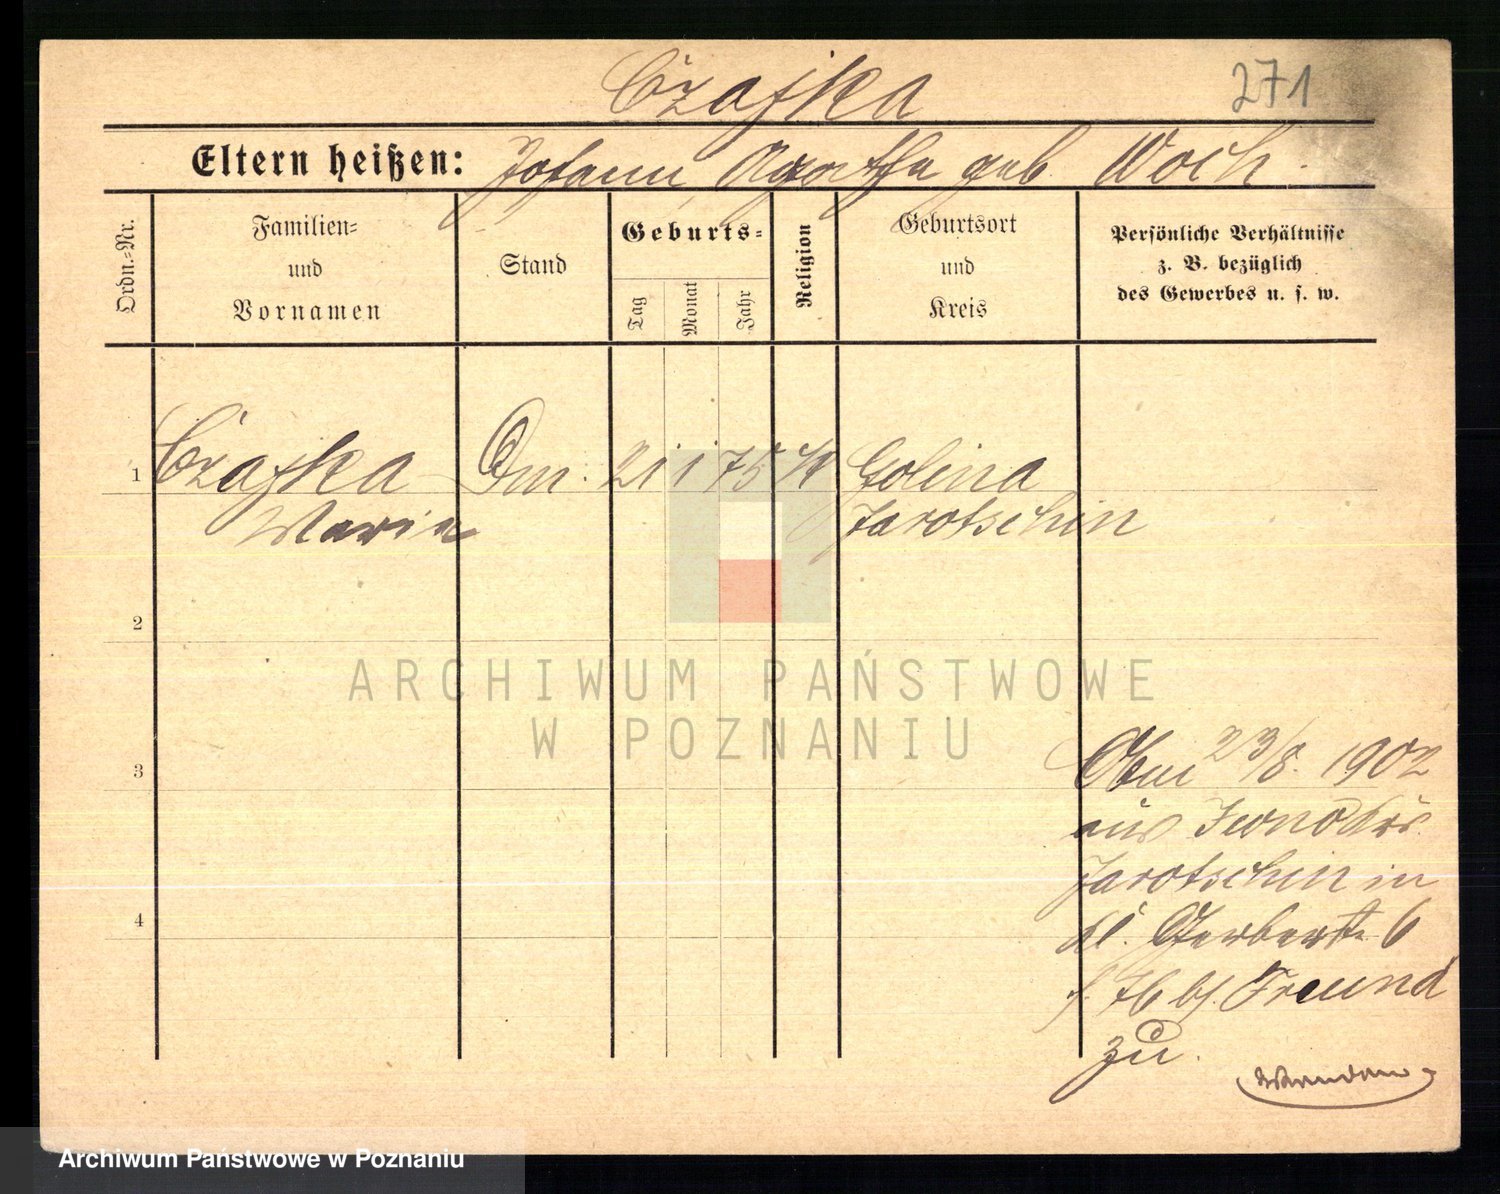 Czajka
271
Eltern heißen: Johann Agatha geb. Woch.
Ordn.-Nr.
Familien-
und
Vornamen
Stand
Geburts-
Tag
Monat
Jahr
Religion
Geburtsort
und
Kreis
Persönliche Verhältnisse
z. B. bezüglich
des Gewerbes u. s. w.
1 Czajka 21 1 75 Golina
Marie Jarotschin
2
ARCHIWUM PAŃSTWOWE
W POZNANIU
3
23/8. 1902
aus
Jarotschin in
4
Kl. Gerberstr. 6
Freund
zu.
Archiwum Państwowe w Poznaniu